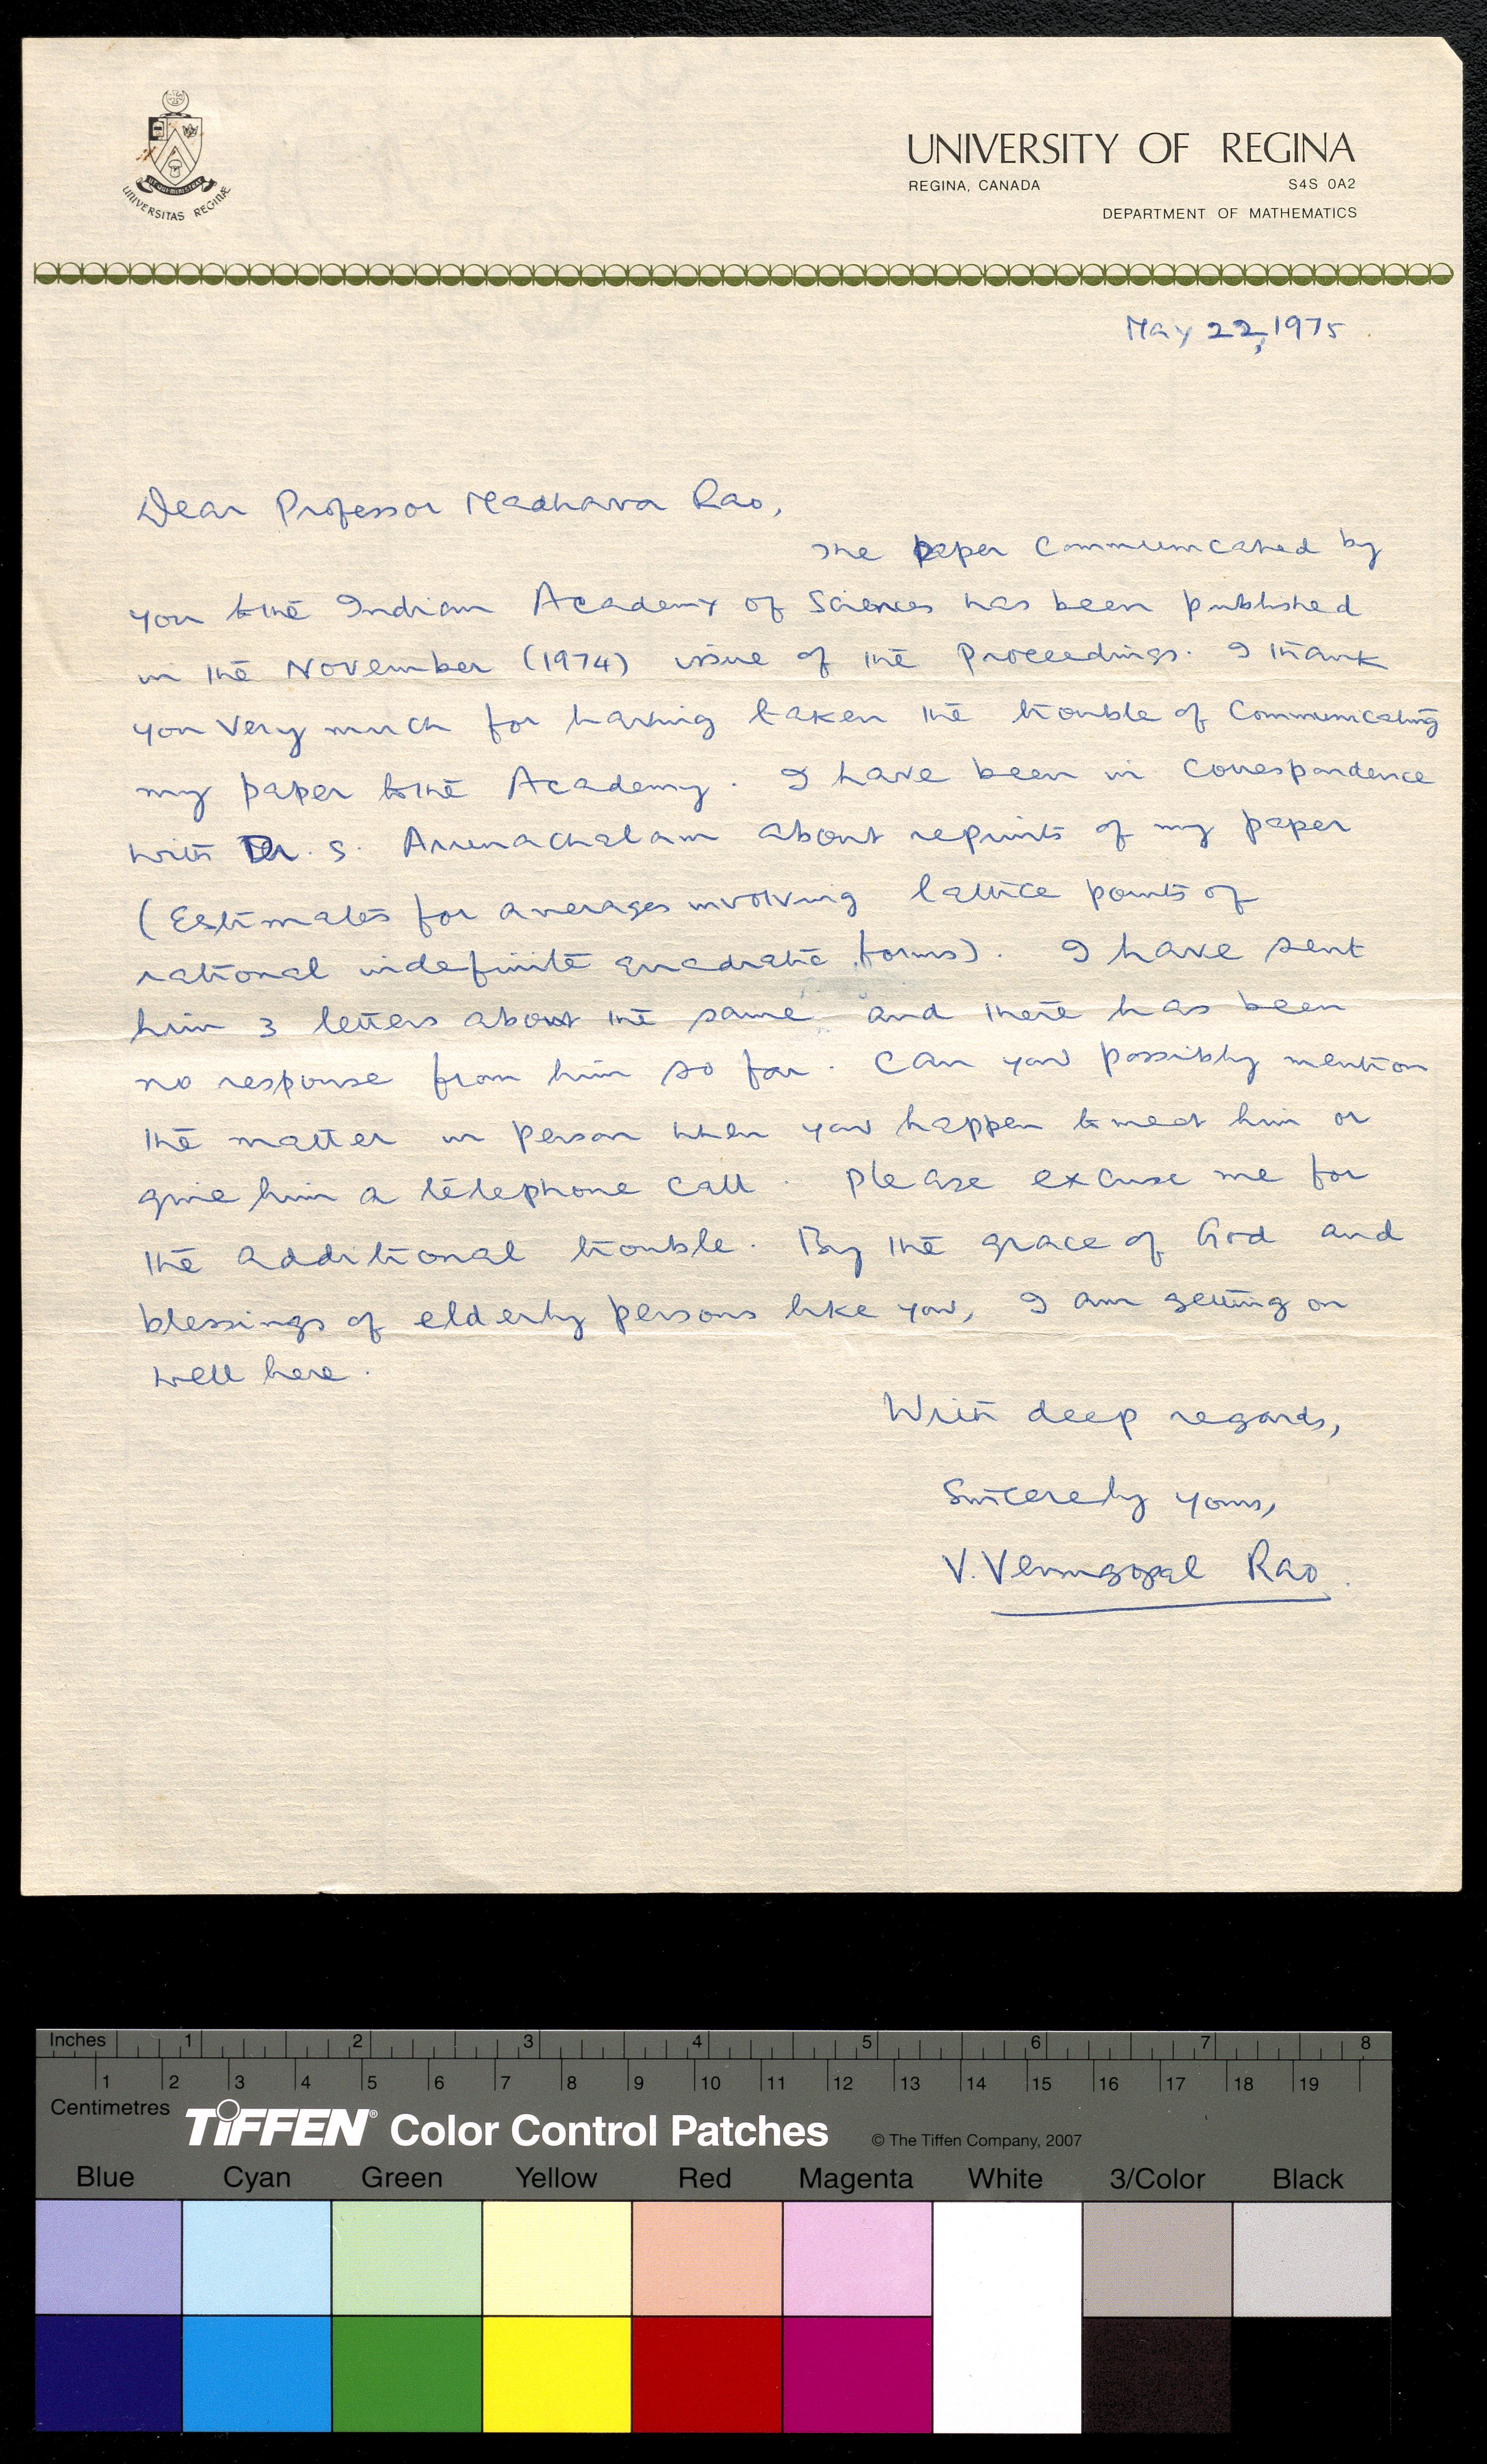 UNIVERSITAS REGINÆ
UNIVERSITY OF REGINA
REGINA, CANADA S4S 0A2
DEPARTMENT OF MATHEMATICS
May 22, 1975
Dear Professor Madhava Rao,
The paper communicated by
you to the Indian Academy of Sciences has been published
in the November (1974) issue of the Proceedings. I thank
you very much for having taken the trouble of communicating
my paper to the Academy. I have been in correspondence
with Dr. S. Arunachalam about reprints of my paper
(Estimates for averages involving lattice points of
rational indefinite quadratic forms). I have sent
him 3 letters about the same and there has been
no response from him so far. Can you possibly mention
the matter in person when you happen to meet him or
give him a telephone call. Please excuse me for
the additional trouble. By the grace of God and
blessings of elderly persons like you, I am getting on
well here.
With deep regards,
Sincerely yours,
V. Venugopal Rao.
Inches 1 2 3 4 5 6 7 8
1 2 3 4 5 6 7 8 9 10 11 12 13 14 15 16 17 18 19
Centimetres
TIFFEN® Color Control Patches © The Tiffen Company, 2007
Blue Cyan Green Yellow Red Magenta White 3/Color Black